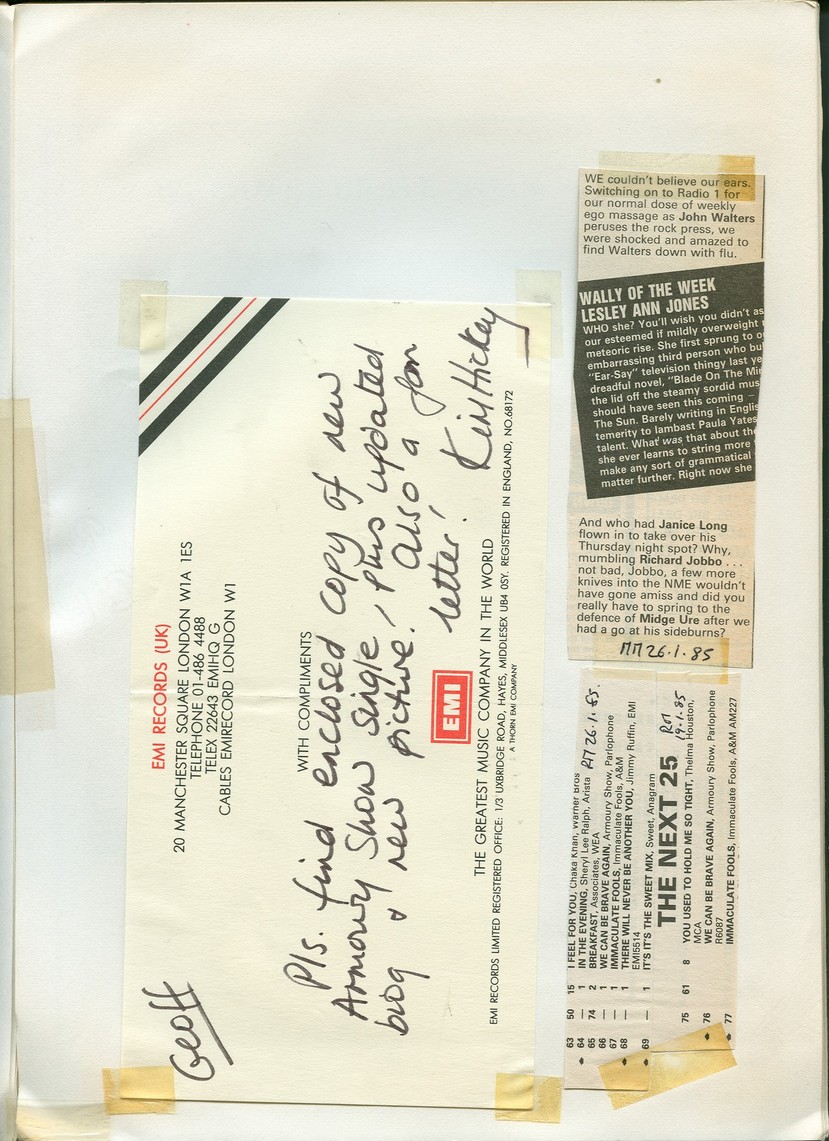 EMI RECORDS (UK)
20 MANCHESTER SQUARE LONDON W1A 1ES
TELEPHONE 01-486 4488
TELEX 22643 EMIHQ G
CABLES EMIRECORD LONDON W1
Geoff
WITH COMPLIMENTS
Pls. find enclosed copy of new
Armoury Show single, plus updated
biog & new picture. Also a fan
letter!
Kim Hickey
EMI
THE GREATEST MUSIC COMPANY IN THE WORLD
EMI RECORDS LIMITED REGISTERED OFFICE: 1/3 UXBRIDGE ROAD, HAYES, MIDDLESEX UB4 0SY. REGISTERED IN ENGLAND, NO.68172
A THORN EMI COMPANY
WE couldn't believe our ears.
Switching on to Radio 1 for
our normal dose of weekly
ego massage as John Walters
peruses the rock press, we
were shocked and amazed to
find Walters down with flu.
WALLY OF THE WEEK
LESLEY ANN JONES
WHO she? You'll wish you didn't as
our esteemed if mildly overweight
meteoric rise. She first sprung to
embarrassing third person who
"Ear-Say" television thingy last
dreadful novel, "Blade On The
the lid off the steamy sordid
should have seen this coming –
The Sun. Barely writing in
temerity to lambast Paula Yates
talent. What was that about the
she ever learns to string more
make any sort of grammatical
matter further. Right now she
And who had Janice Long
flown in to take over his
Thursday night spot? Why,
mumbling Richard Jobbo . . .
not bad, Jobbo, a few more
knives into the NME wouldn't
have gone amiss and did you
really have to spring to the
defence of Midge Ure after we
had a go at his sideburns?
MM 26.1.85
63 50 15 I FEEL FOR YOU, Chaka Khan, Warner Bros
64 — 1 IN THE EVENING, Sheryl Lee Ralph, Arista
RM 26.1.85.
65 74 2 BREAKFAST, Associates, WEA
66 — 1 WE CAN BE BRAVE AGAIN, Armoury Show, Parlophone
67 — 1 IMMACULATE FOOLS, Immaculate Fools, A&M
68 — 1 THERE WILL NEVER BE ANOTHER YOU, Jimmy Ruffin, EMI
EMI5514
69 — 1 IT'S IT'S THE SWEET MIX, Sweet, Anagram
THE NEXT 25
RM
19.1.85
75 61 8 YOU USED TO HOLD ME SO TIGHT, Thelma Houston,
MCA
76 WE CAN BE BRAVE AGAIN, Armoury Show, Parlophone
R6087
77 IMMACULATE FOOLS, Immaculate Fools, A&M AM227